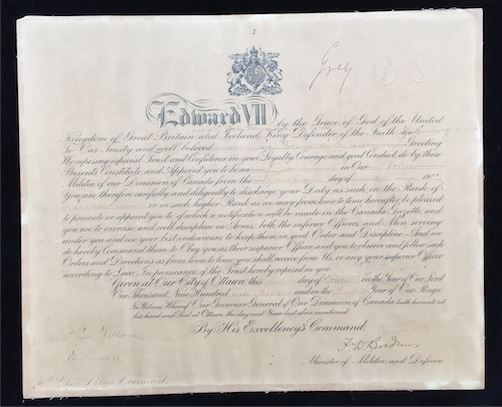 Grey
Edward VII by the Grace of God of the United
Kingdom of Great Britain and Ireland, King, Defender of the Faith &c
To Our Trusty and well beloved Greeting
We reposing especial Trust and Confidence in your Loyalty, Courage and good Conduct, do by these
Presents Constitute and Appoint you to be in Our
Militia of our Dominion of Canada from the day of 19
You are therefore carefully and diligently to discharge your Duty as such in the Rank of
or in such higher Rank as we may from time to time hereafter be pleased
to promote or appoint you to, of which a notification will be made in the Canada Gazette, and
you are to exercise and well discipline in Arms both the inferior Officers and Men serving
under you and use your best endeavours to keep them in good Order and Discipline. And we
do hereby Command them to Obey you as their superior Officer, and you to observe and follow such
Orders and Directions as from time to time you shall receive from Us or any your superior Officer
according to Law. In pursuance of the Trust hereby reposed in you
Given at Our City of Ottawa this day of in the Year of our Lord
One Thousand Nine Hundred and in the Year of Our Reign.
In Witness Whereof Our Governor General of Our Dominion of Canada hath hereunto set
his hand and Seal at Ottawa the day and Year last above mentioned.
By His Excellency's Command.
F W Borden
Minister of Militia and Defence.